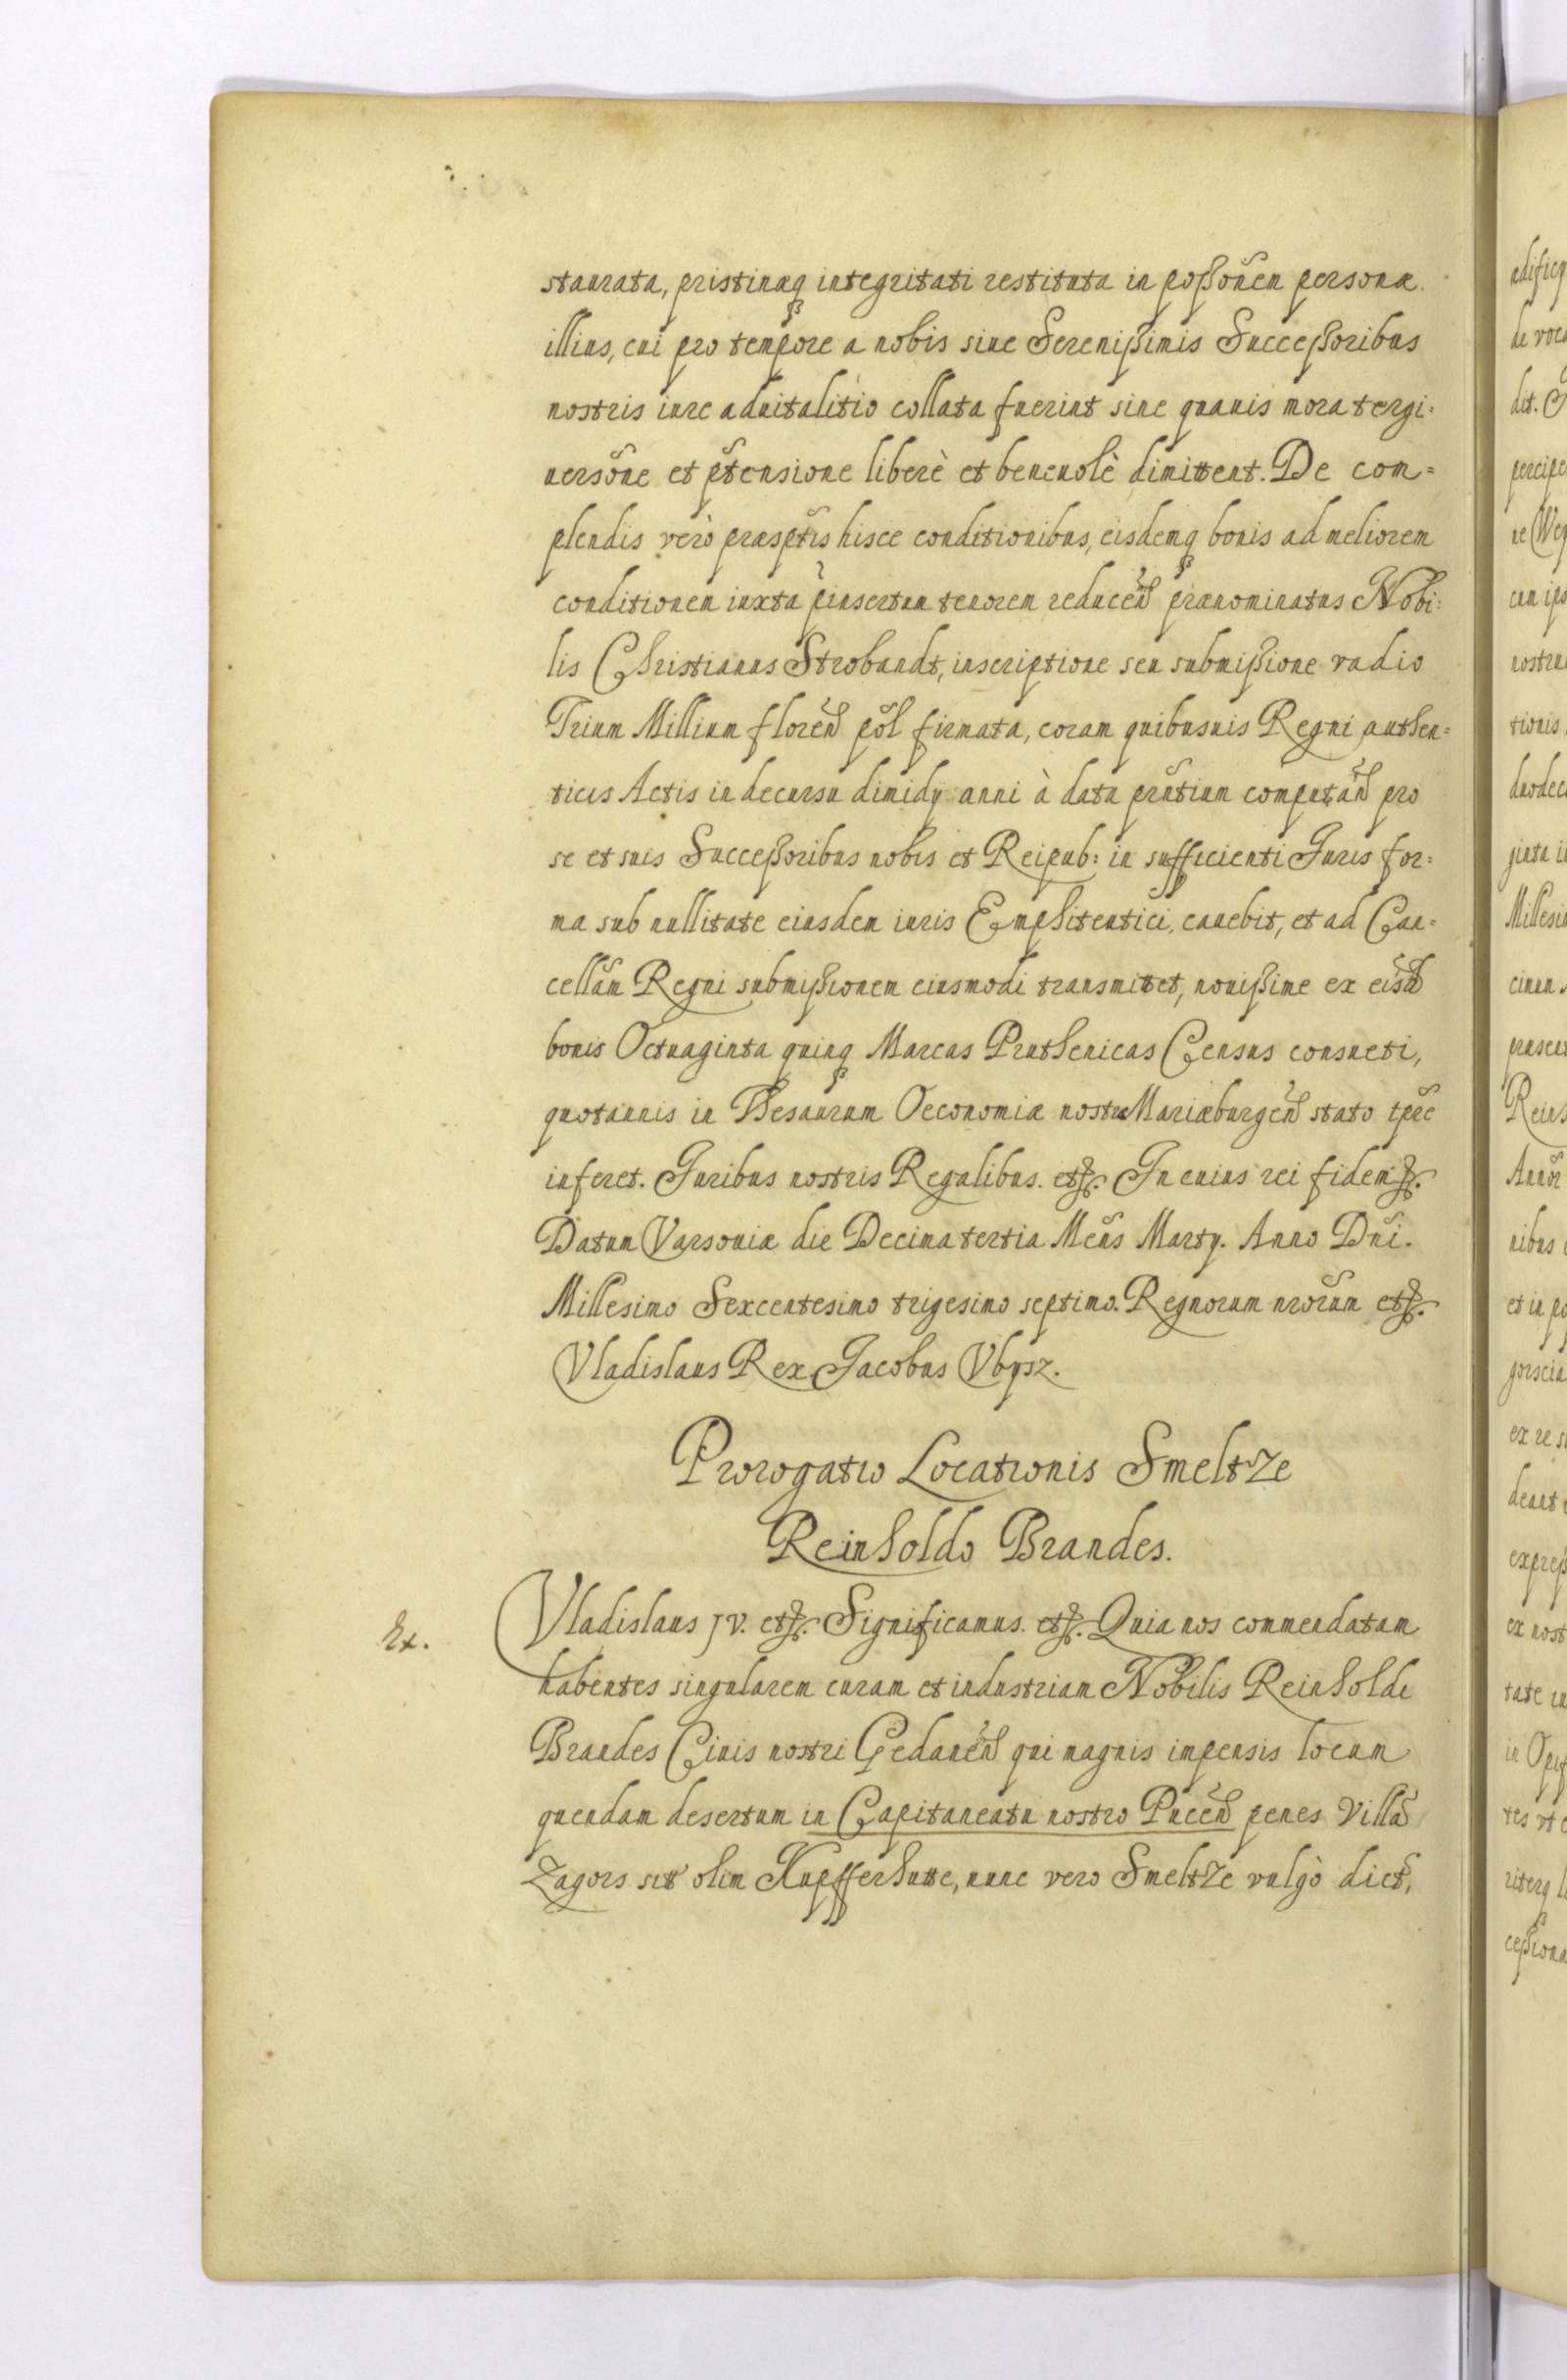 staurata, pristinæq integritati restituta in poßonem personæ
illius, cui pro tempore a nobis siue Serenißimis Succeßoribus
nostris iure aduitalitio collata fuerint sine quauis mora tergi=
uersone et ptensione liberè et beneuolè dimittent. De com=
plendis verò præsptis hisce conditionibus, eisdemq bonis ad meliorem
conditionem iuxta pinsertum tenorem reducen prænominatus Nobi=
lis Christianus Strobandt, inscriptione seu submißione vadio
Trium Millium floren pol firmata, coram quibusuis Regni authen=
ticis Actis in decursu dimidy anni à data prntium computan pro
se et suis Succeßoribus nobis et Reipub: in sufficienti Juris for=
ma sub nullitate eiusdem iuris Emphiteutici, cauebit, et ad Can=
cellam Regni submißionem eiusmodi transmittet, nouißime ex eisd
bonis Octuaginta quinq Marcas Pruthenicas Census consueti,
quotannis in Thesaurum Oeconomiæ nostræ Mariæburgen stato tpre
inferet. Juribus nostris Regalibus. etc. In cuius rei fidem etc.
Datum Varsouiæ die Decima tertia Mens Marty. Anno Dni.
Millesimo Sexcentesimo trigesimo septimo. Regnorum nrorum etc.
Vladislaus Rex. Jacobus Vbysz.
Prorogatio Locationis Smeltze
Reinholdo Brandes.
Ex.
Vladislaus IV. etc. Significamus. etc. Quia nos commendatam
habentes singularem curam et industriam Nobilis Reinholdi
Brandes Ciuis nostri Gedanen qui magnis impensis locum
quendam desertum in Capitaneatu nostro Pucen penes Villa
Zagors sitt olim Kupfferhutte, nunc vero Smeltze vulgò dict,